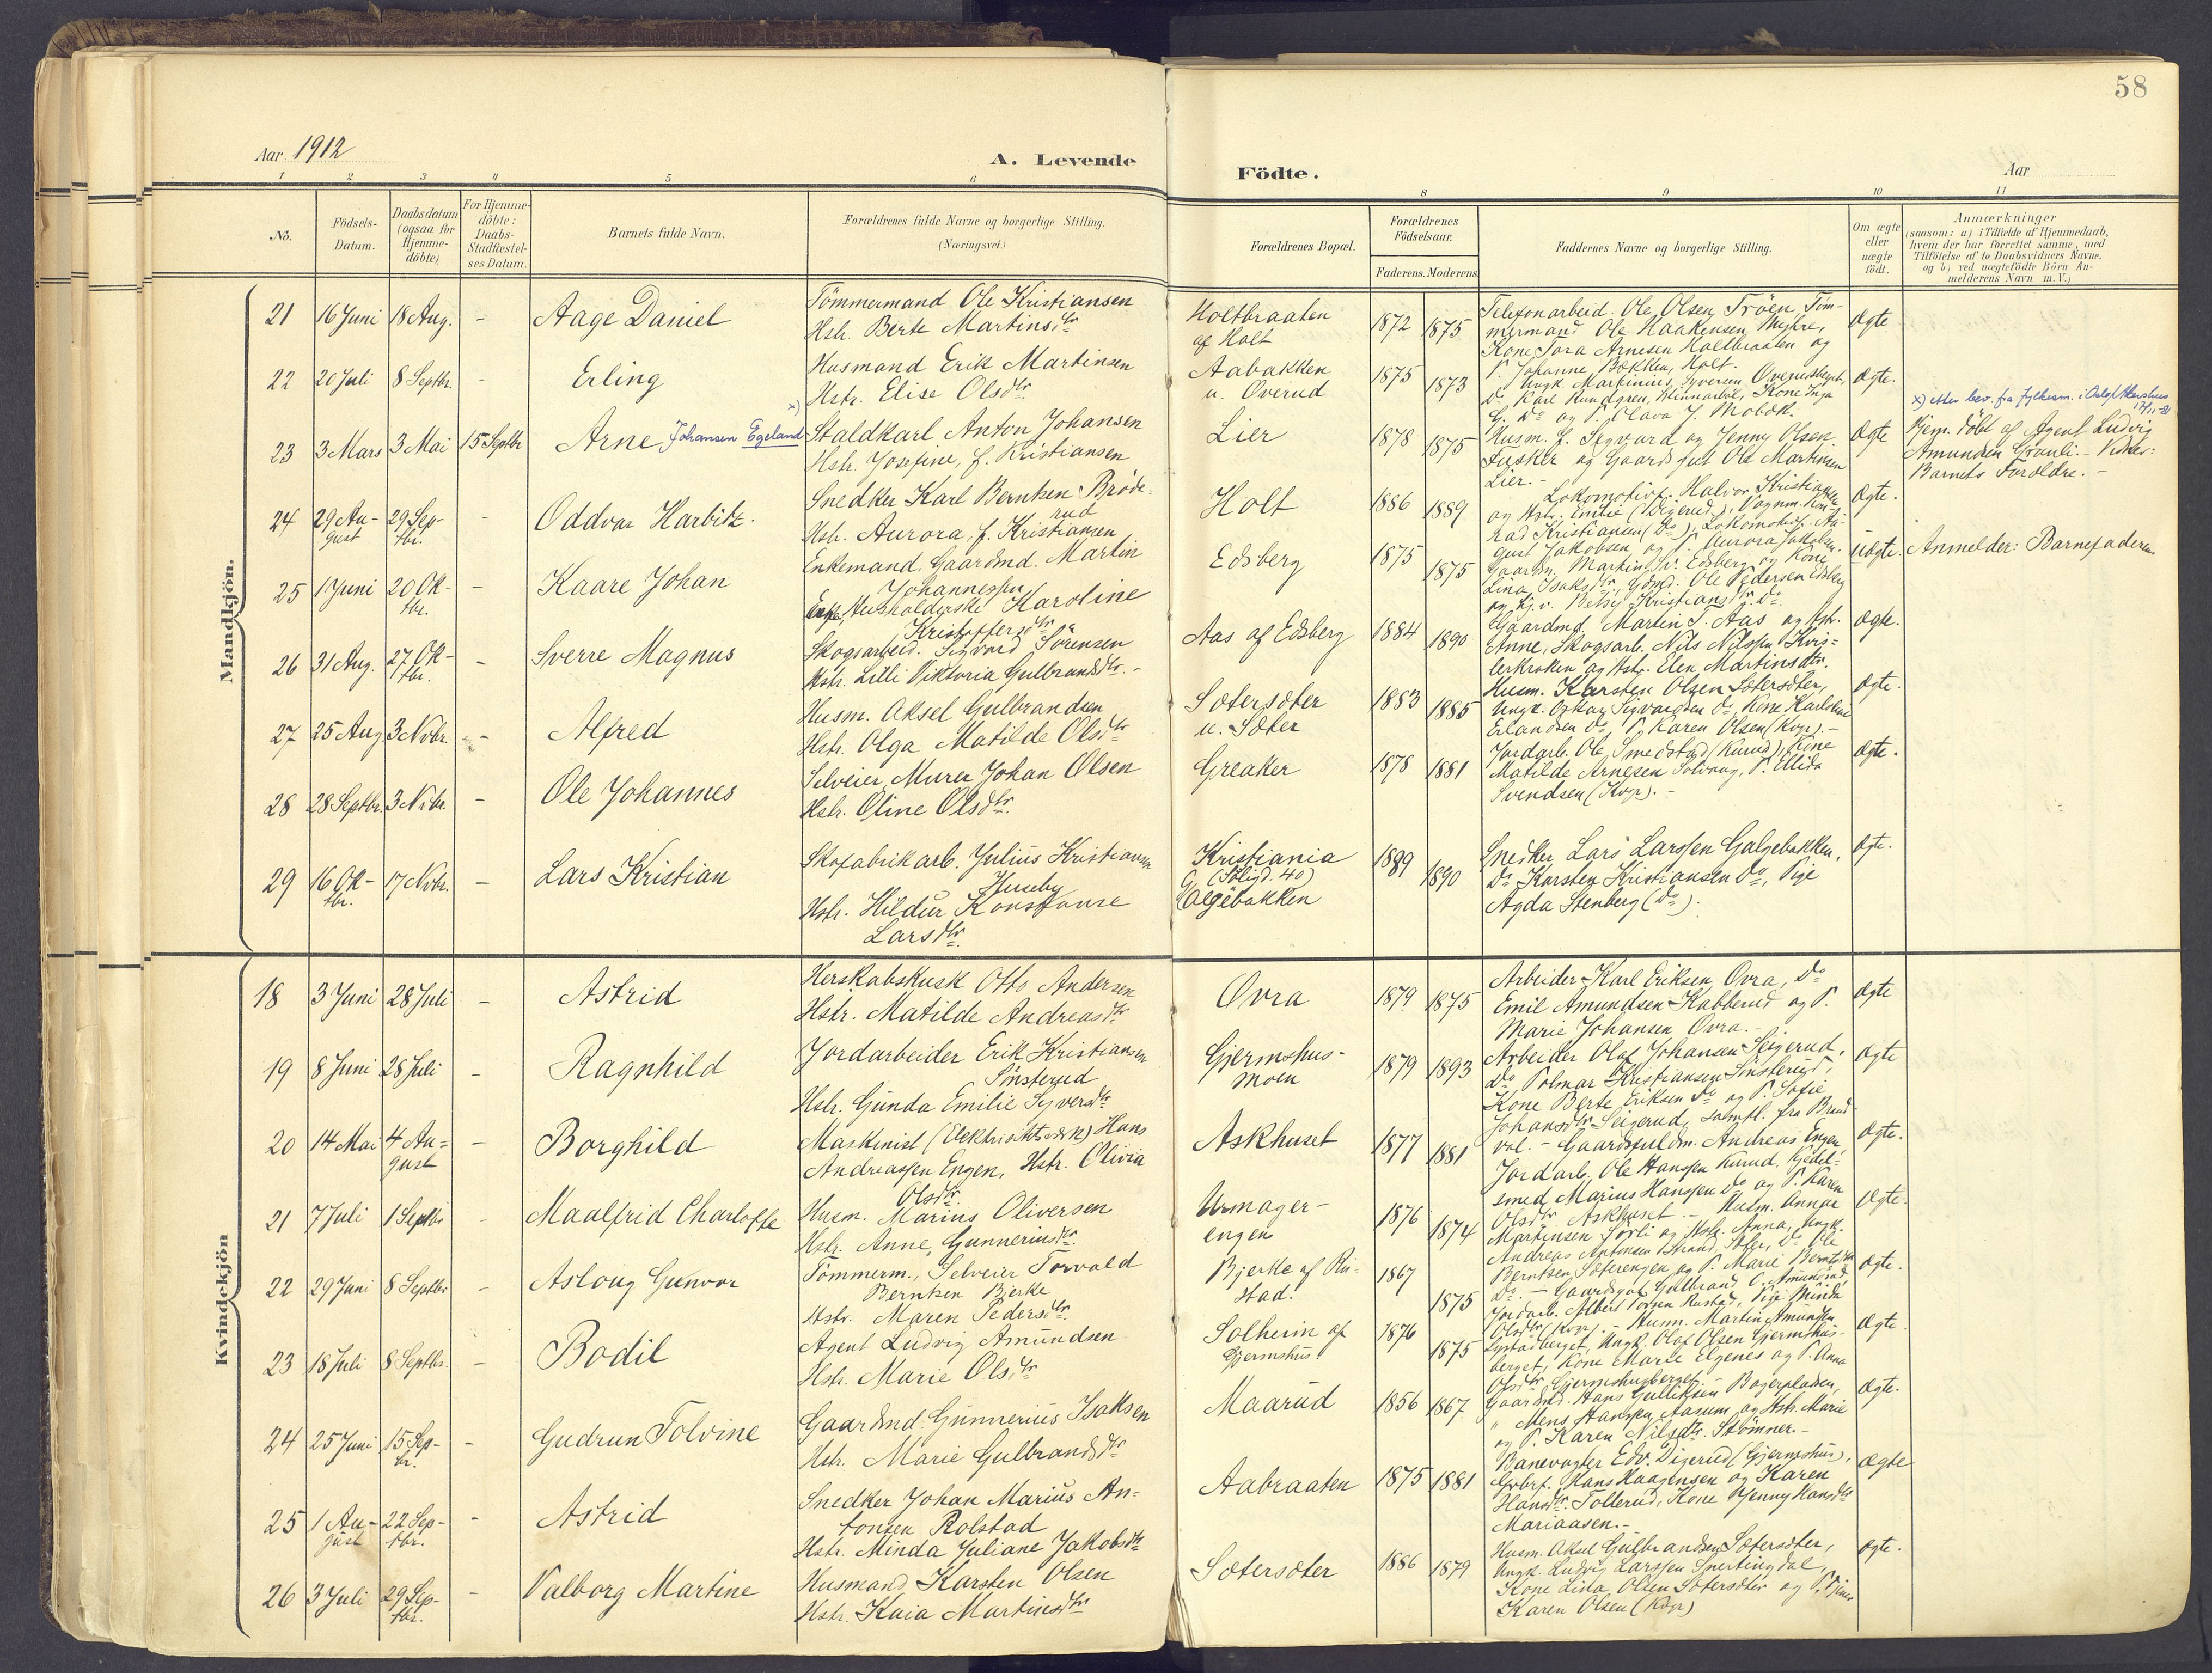 58
Aar 1912
A. Levende
Födte.
Aar
1 2 3 4 5 6 8 9 10 11
No.
Födsels-
Datum.
Daabsdatum
(ogsaa for
Hjemme-
döbte)
For Hjemme-
döbte:
Daabs-
Stadfæstel-
ses Datum.
Barnets fulde Navn.
Forældrenes fulde Navne og borgerlige Stilling.
(Næringsvei.)
Forældrenes Bopæl.
Forældrenes
Födselsaar.
Faderens. Moderens
Faddernes Navne og borgerlige Stilling.
Om ægte
eller
uægte
födt.
Anmærkninger
(saasom: a) i Tilfælde af Hjemmedaab,
hvem der har forrettet samme, med
Tilföielse af to Daabsvidners Navne.
og b) ved uægtefödte Börn An-
melderens Navn m. V.)
Mandkjön.
21 16 Juni 18 Aug. - Aage Daniel
Tömmermand Ole Kristiansen
Hstr. Berte Martinsdtr
Holtbraaten
af Holt
1872 1875
Telefonarbeid. Ole Olsen Tröen, Töm-
mermand Ole Haakensen Myhre,
Kone Tora Arnesen Holtbraaten og
P. Johanne Bakken, Holt.
Ægte
22 20 Juli 8 Septbr. - Erling
Husmand Erik Martinsen
Hstr. Elise Olsdtr
Aabakken
u. Överud
1875 1873
Ungk. Martinius Syversen Överudseget,
Do Karl Rundgren, Minnarböl, Kone Inga
G. Do og P. Olava J. Mobæk.
Ægte.
23 3 Mars 3 Mai 15 Septbr Arne x) Johansen Egeland
Staldkarl Anton Johansen
Hstr. Josefine, f. Kristiansen
Lier
1878 1875
Husm. f. Sigvard og Jenny Olsen
Fusker og Gaardsfut Ole Martinsen
Lier. -
Ægte
x) etter bev. fra fylkesm. i Oslo og Akershus
Hjem. döbt af Agent Ludvig
Amundsen Grauli. - Vidner:
Barnets Forældre. -
24 29 Au-
gust
29 Sep-
tbr.
- Oddvar Harbitz.
Snedker Karl Berntsen Bröde-
rud
Hstr. Aurora, f. Kristiansen
Holt
1886 1889
Lokomotivf. Halvor Kristiansen
og Hstr. Emilie (Digerud), Vognm. Kon-
rad Kristiansen (Do), Lokomotivf. Au-
gust Jakobsen og P. Aurora Jakobsen.
Ægte.
25 1 Juni 20 Ok-
tbr.
- Kaare Johan
Enkemand, Gaardmd. Martin
Johannessen
Husholderske Karoline
Kristoffersdtr
Edsberg
1875 1875
Gaardm. Martin Edsberg og Kone
Lina Isaksdtr, Gdmd. Ole Pedersen Edsberg
og Gj.v. Betsy Kristiansdtr Do
Uægte.
Anmelder: Barnefaderen
26 31 Aug. 27 Ok-
tbr.
- Sverre Magnus
Skogsarbeid. Sigvard Sörensen
Hstr. Lilli Viktoria Gulbrandsdtr. -
Aas af Edsberg
1884 1890
Gaardmd Martin S. Aas og Hstr.
Anne, Skogsarb. Nils Nilssen Kvis-
lerkroken og Hstr. Elen Martinsdtr.
Ægte.
27 25 Aug 3 Novbr. - Alfred
Husm. Aksel Gulbrandsen
Hstr. Olga Matilde Olsdtr
Sætersæter
u. Sæter
1883 1885
Husm. Karsten Olsen Sætersæter,
Ungk. Oskar Sigvardsen Do, Kone Karoline
Erlandsen Do, P. Karen Olsen (Kvgr). -
Ægte.
28 28 Septbr. 3 Nvbr. - Ole Johannes
Selveier, Murer Johan Olsen
Hstr. Oline Olsdtr.
Greaker
1878 1881
Jordarb. Ole Smedstad (Kurud), Kone
Matilde Arnesen Solvang, P. Ellida
Svendsen (Kvgr). -
Ægte.
29 16 Ok-
tbr.
17 Nvbr. - Lars Kristian
Skofabrikarb. Julius Kristiansen
Huseby
Hstr. Hildur Konstanse
Larsdtr.
Kristiania
40)
Galgebakken
1889 1890
Snedker Lars Larssen Galgebakken,
Do Karsten Kristiansen Do, Pige
Agda Stenberg (Do).
Ægte.
Kvindekjön
18 3 Juni 28 Juli - Astrid
Herskabskusk Otto Andersen
Hstr. Matilde Andreasdtr
Ovra
1879 1875
Arbeider Karl Eriksen Ovra, Do
Emil Amundsen Kabberud og P.
Marie Johansen Ovra. -
Ægte
19 8 Juni 28 Juli - Ragnhild
Jordarbeider Erik Kristiansen
Sönsterud
Hstr. Gunda Emilie Syversdtr
Gjermshus-
moen
1879 1893
Arbeider Olaf Johansen Seigerud,
Do Polmar Kristiansen Sinsterud,
Kone Berte Eriksen Do og P. Sofie
Johansdtr Seigerud, samtl. fra Brand-
val. -
Ægte
20 14 Mai 4 Au-
gust
- Borghild
Maskinist (Elektrisitetsverk) Hans
Andreassen Engen, Hstr. Olivia
Olsdtr.
Askhuset
1877 1881
Gaardsfuldm. Andreas Engen,
Jordarb. Ole Hanssen Kurud, Kjedel-
smed Marius Hanssen Do og P. Karen
Olsdtr Askhuset. -
Ægte.
21 7 Juli 1 Septbr - Maalfrid Charlotte
Husm. Marius Oliversen
Hstr. Anne Gunneriusdtr.
Urmager-
engen
1876 1874
Husm. Annar
Martinsen Sörli og Hstr. Anna, Ungk.
Andreas Antonsen Strand, Sæter, Do Ole
Berntsen Sæterengen og P. Marie Berntsdtr
Do. -
Ægte.
22 29 Juni 8 Septbr - Aslaug Gunvor
Tömmerm., Selveier Torvald
Berntsen Bjerke
Hstr. Maren Pedersdtr.
Bjerke af Ru-
stad.
1867 1875
Gaardsgut Gulbrand O. Amundrud,
Jordarb. Albert Torsen Rustad, Pige Minda
Olsdtr (Kvgr). -
Ægte.
23 18 Juli 8 Septbr. - Bodil
Agent Ludvig Amundsen
Hstr. Marie Olsdtr
Solheim af
Gjermshus.
1876 1875
Husm. Martin Amundsen
Lystadberget, Ungk. Olaf Olsen Gjermshus-
berget, Kone Marie Elgenes og P. Anna
Olsdtr Gjermshusberget. -
Ægte.
24 25 Juni 15 Sep-
br.
- Gudrun Tolvine
Gaardmd. Gunnerius Isaksen
Hstr. Marie Gulbrandsdtr
Maarud
1856 1867
Gaardmd. Hans Gulliksen Bagerpladsen,
" Mens Hanssen Aasum og Hstr. Marie
og P. Karen Nilsdtr. Strömner. -
Ægte.
25 1 Au-
gust
22 Sep-
tbr.
- Astrid
Snedker Johan Marius An-
tonsen Rolstad
Hstr. Minda Juliane Jakobsdtr
Aabraaten
1875 1881
Banevogter Edv. Digerud (Gjermshus),
Gbrf. Hans Haagensen og Karen
Hansdtr. Tollerud, Kone Jenny Hansdtr
Mariaasen. -
Ægte
26 3 Juli 29 Sep-
tbr.
- Valborg Martine
Husmand Karsten Olsen
Hstr. Kaia Martinsdtr
Sætersæter
1886 1879
Husm. Aksel Gulbrandsen Sætersæter,
Ungk. Ludvig Larssen Snertingdal,
Kone Lina Olsen Sætersæter og P.
Karen Olsen (Kvgr)
Ægte.